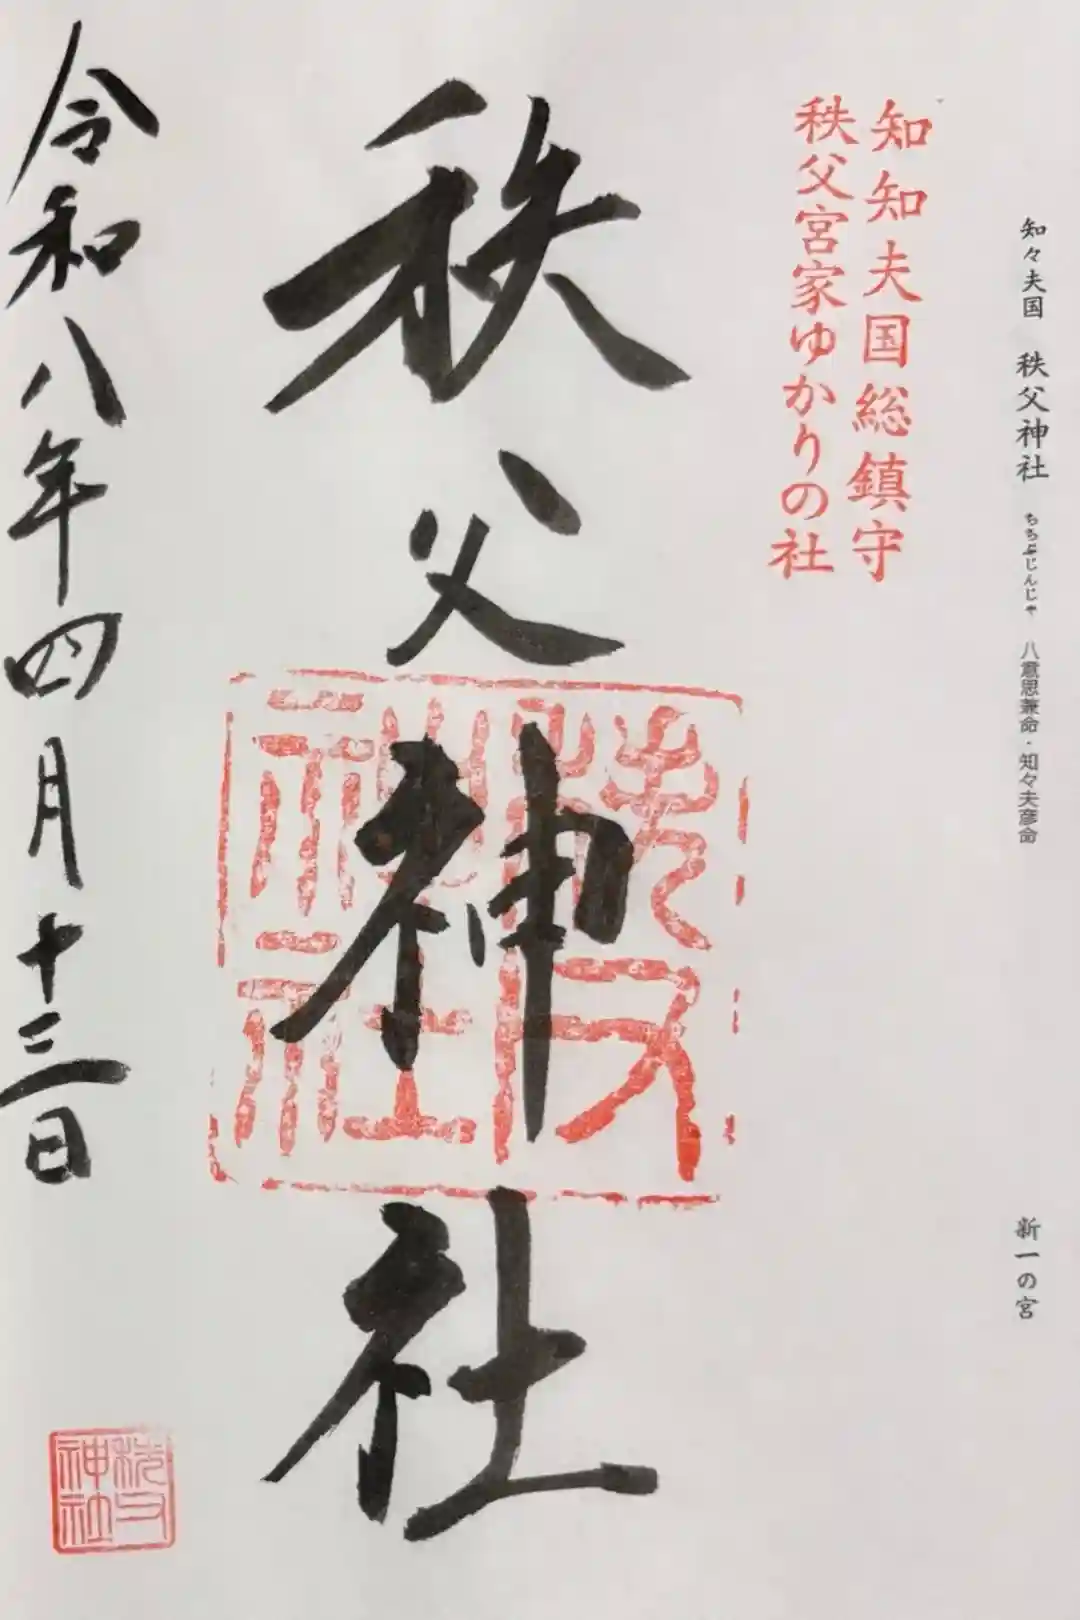 知々夫国 秩父神社 ちちぶじんじゃ 八意思兼命・知々夫彦命 新一の宮
知知夫国総鎮守
秩父宮家ゆかりの社
秩父神社
秩父神社
令和八年四月十三日
秩父神社